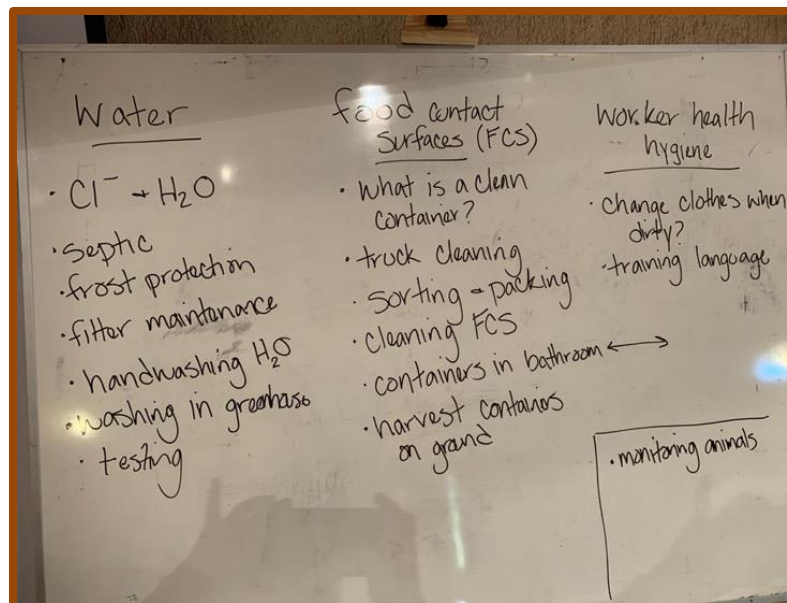 Water
• Cl⁻ → H₂O
• septic
• frost protection
• filter maintenance
• handwashing H₂O
• washing in greenhouse
• testing
food contact
surfaces (FCS)
• What is a clean
container?
• truck cleaning
• sorting - packing
• cleaning FCS
• containers in bathroom ↔
• harvest containers
on ground
worker health
hygiene
• change clothes when
dirty?
• training language
• monitoring animals